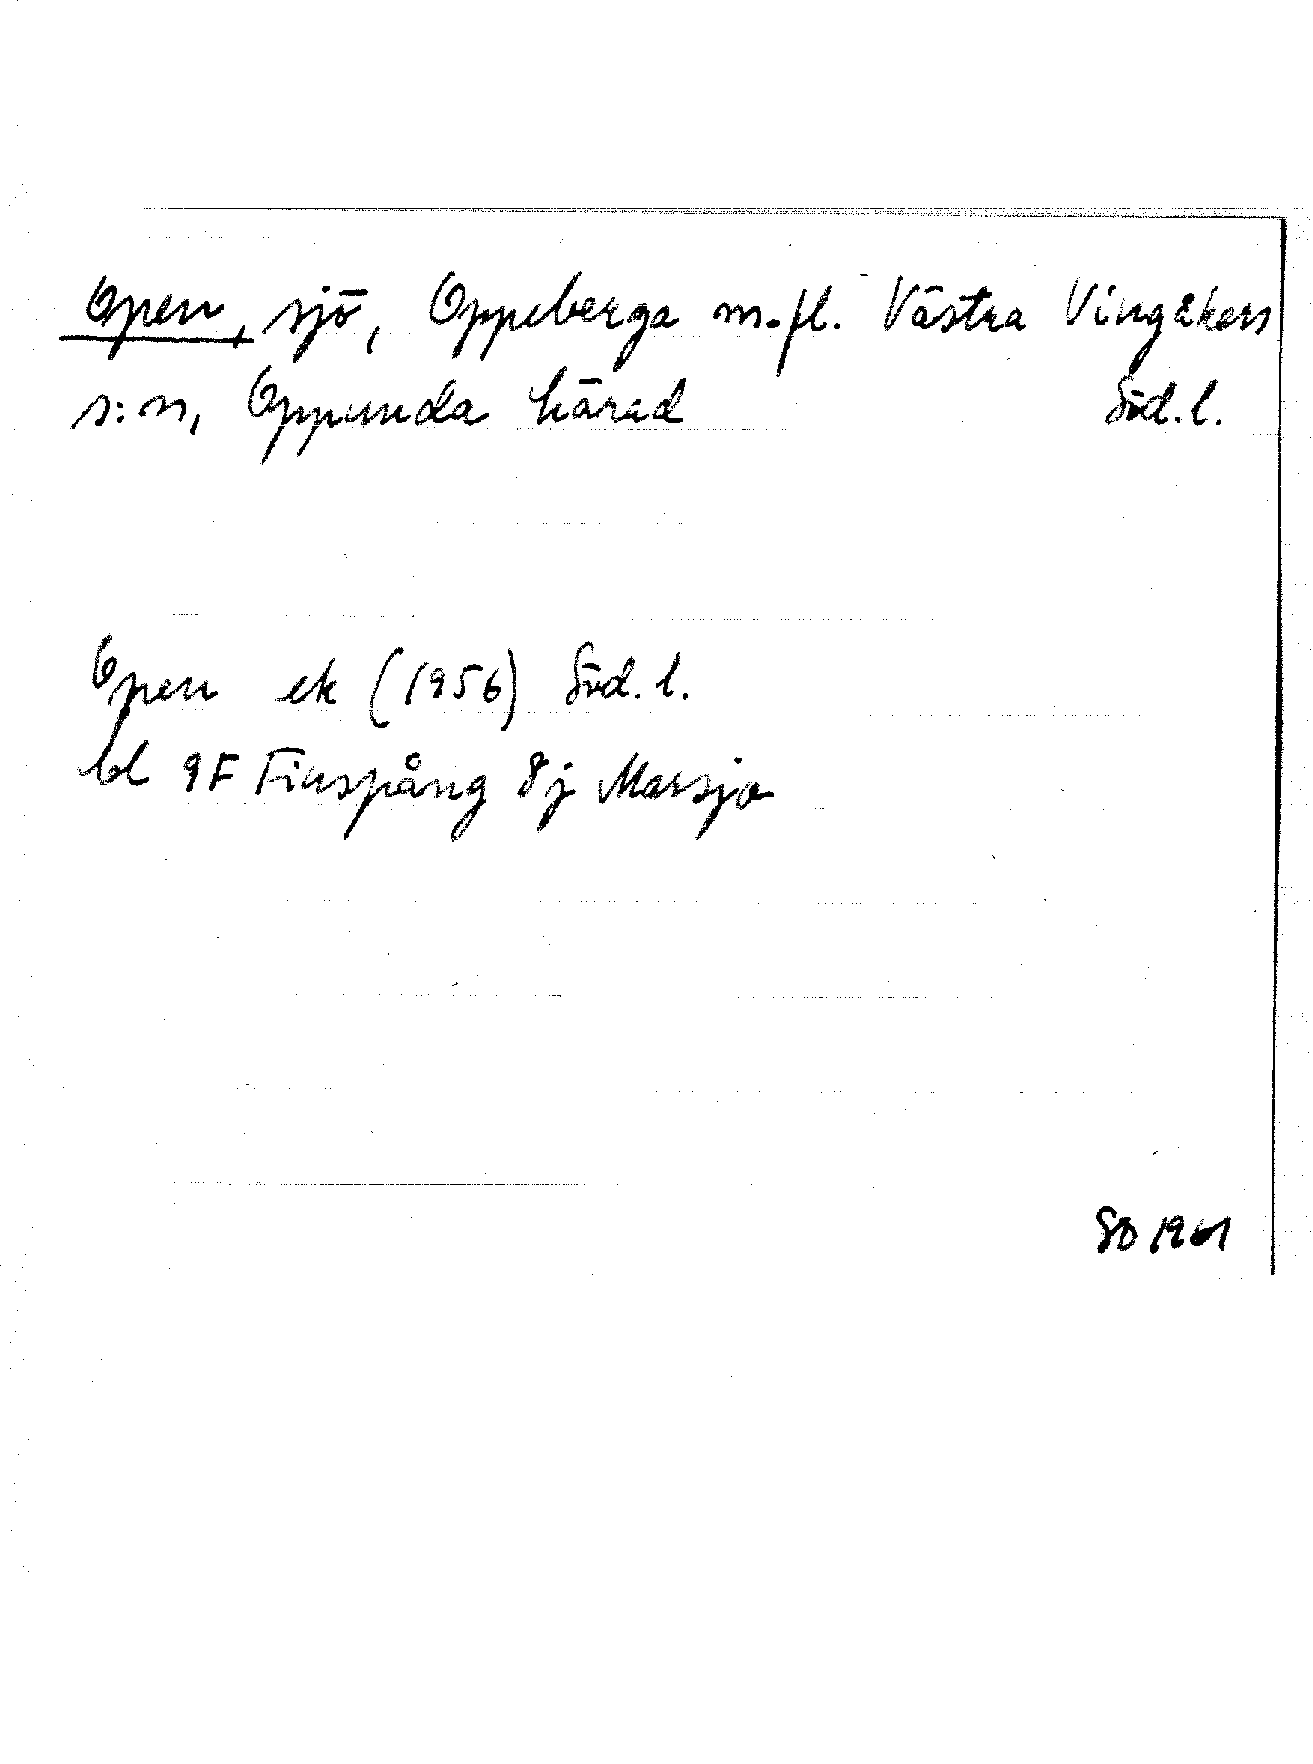 Open, sjö, Oppeberga m.fl. Västra Vingåkers
s:n, Oppunda härad Söd.l.
Open ek (1956) Söd.l.
bl 9F Finspång 8j Marsjö
SO 1961